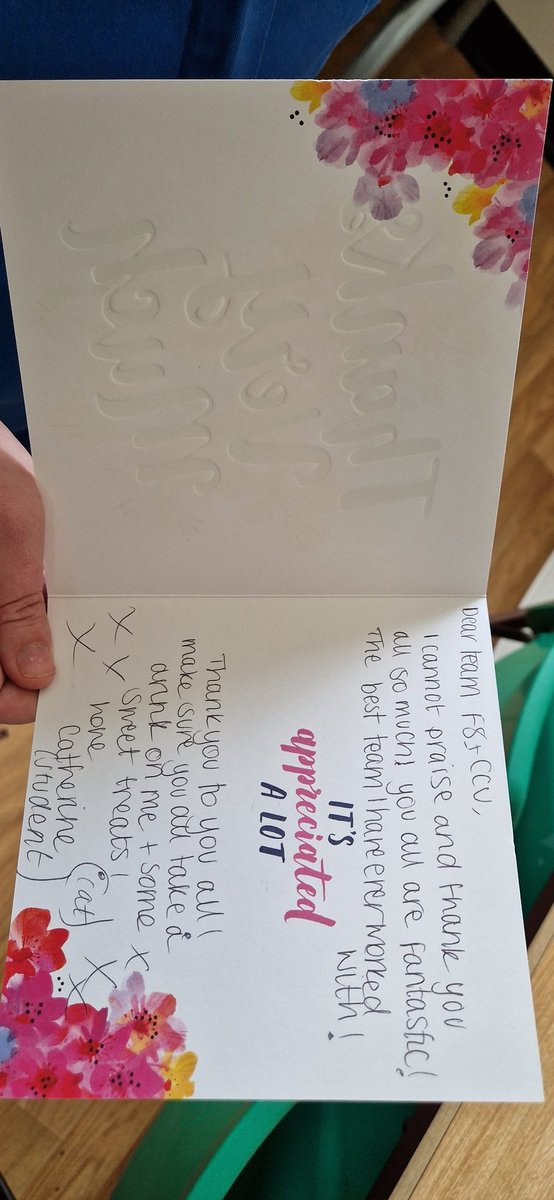 Thanks
very
much
Dear team F8 + CCU,
I cannot praise and thank you
all so much, you all are fantastic!
The best team I have ever worked
with!
IT'S
appreciated
A LOT
Thank you to you all!
make sure you all take a
drink on me + some x
x x sweet treats!
x love
Catherine (cat) x x
(student)